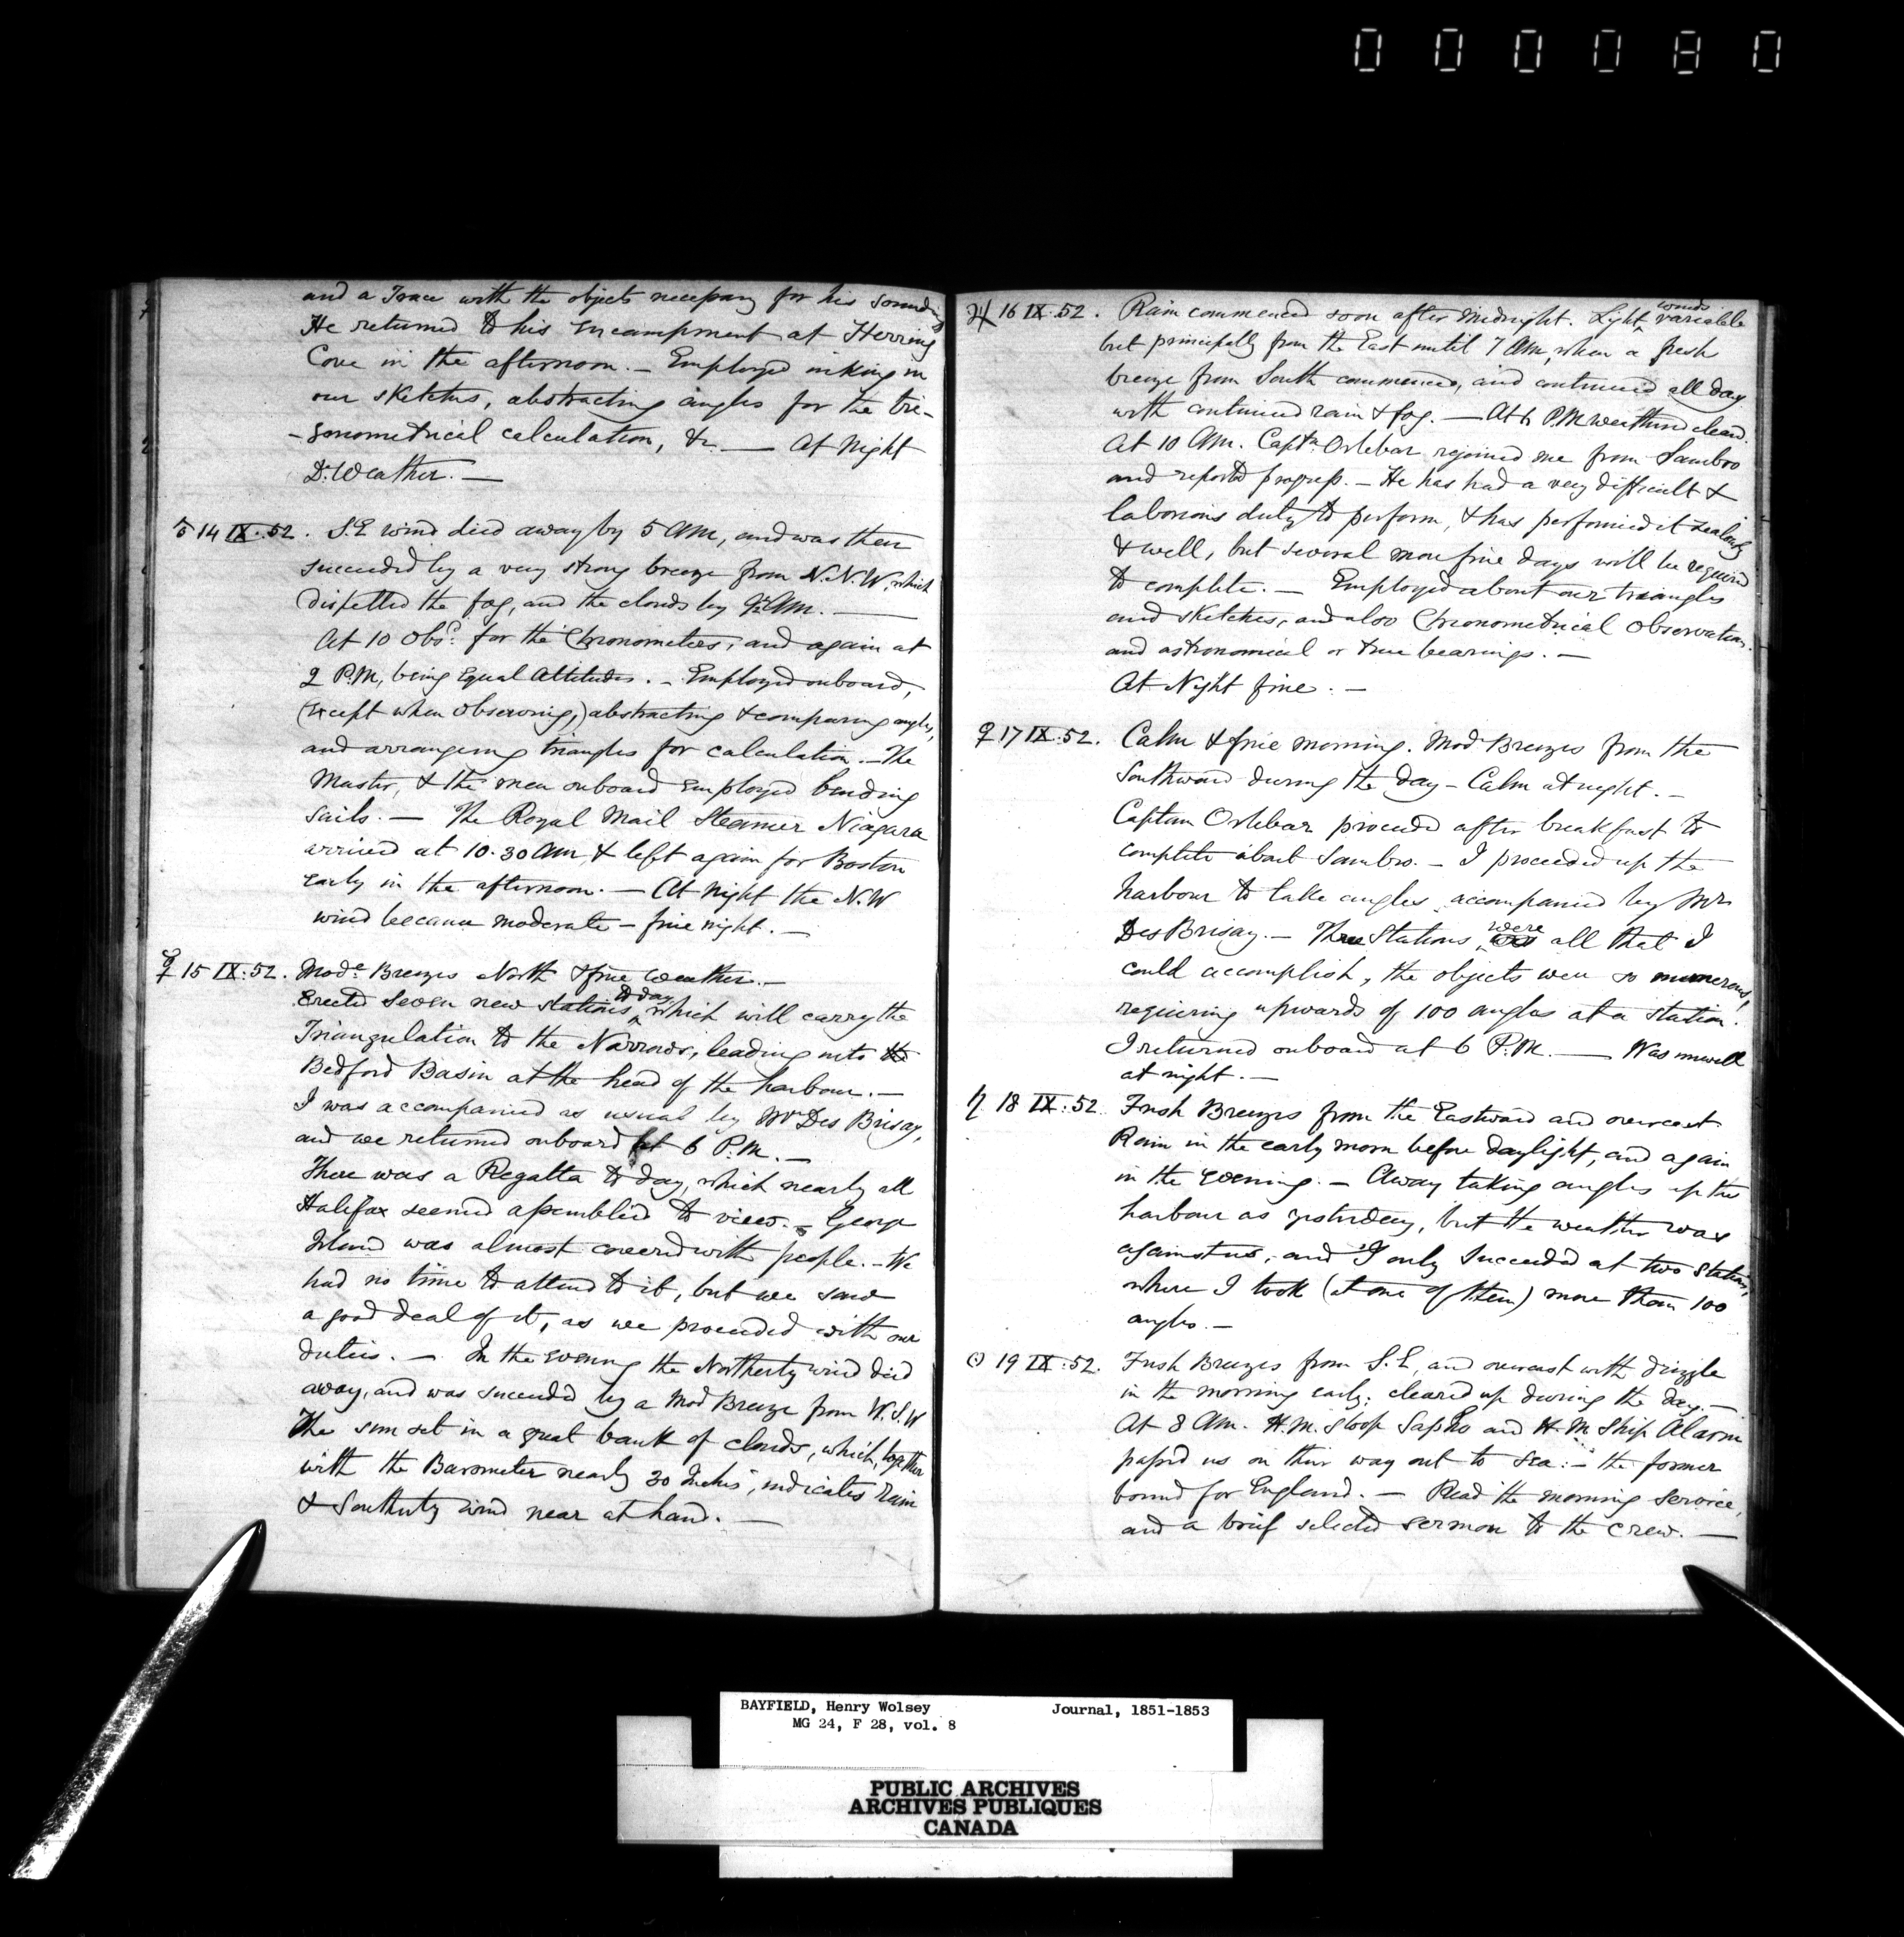 000080
and a Trace with the objects necessary for his sounding
He returned to his encampment at Herring
Cove in the afternoon. — Employed inking in
our sketches, abstracting angles for the tri-
-gonometrical calculation, &c. — At Night
Do. Weather. —
♂ 14 IX. 52. S.E wind died away by 5 AM, and was then
succeeded by a very strong breeze from N.N.W, which
dispelled the fog, and the clouds by AM. —
At 10 Obsd. for the Chronometers, and again at
2 P.M, being Equal Altitudes. — Employed onboard,
(except when observing,) abstracting & comparing angles,
and arranging triangles for calculation. — The
Master, & the men onboard employed bending
sails. — The Royal Mail Steamer Niagara
arrived at 10.30 AM, & left again for Boston
early in the afternoon. — At night the N.W
wind became moderate — fine night. —
☿ 15 IX: 52. Mode. Breezes North & fine weather. —
Erected seven new stations to day, which will carry the
Triangulation to the Narrows, leading into the
Bedford Basin at the head of the harbour. —
I was accompanied as usual by Mr Des Brisay,
and we returned onboard at 6 P.M. —
There was a Regatta to day, which nearly all
Halifax seemed assembled to view. — George
Island was almost covered with people. — We
had no time to attend to it, but we saw
a good deal of it, as we proceeded with our
duties. — In the evening the Northerly wind died
away, and was succeeded by a Mod Breeze from W.S.W
The sun set in a great bank of clouds, which, together
with the Barometer nearly 30 Inches, indicates rain
& Southerly wind near at hand. —
♃ 16 IX. 52. Rain commenced soon after Midnight. Light winds variable
but principally from the East until 7 AM, when a fresh
breeze from South commenced, and continued all day
with continued rain & fog. — At 6 P.M weather cleared.
At 10 AM. Captn. Orlebar rejoined me from Sambro
and reported progress. — He has had a very difficult &
laborious duty to perform, & has performed it zealously
& well, but several more fine days will be required
to complete. — Employed about our triangles
and sketches, and also Chronometrical Observations
and astronomical or true bearings. —
At Night fine. —
♀ 17 IX: 52. Calm & fine morning. Mod Breezes from the
Southward during the day — Calm at night. —
Captain Orlebar proceeded after breakfast to
complete about Sambro. — I proceeded up the
harbour to take angles, accompanied by Mr
Des Brisay. — Three Stations were all that I
could accomplish, the objects were so numerous,
requiring upwards of 100 angles at a station!
I returned onboard at 6 P.M. — Was unwell
at night. —
♄ 18 IX: 52 Fresh Breezes from the Eastward and overcast
Rain in the early morn before daylight, and again
in the evening. — Away taking angles up the
harbour as yesterday, but the weather was
against us, and I only succeeded at two stations,
where I took (at one of them) more than 100
angles. —
☉ 19 IX: 52. Fresh Breezes from S.E, and overcast with drizzle
in the morning early: cleared up during the day. —
At 8 AM. H.M. Sloop Sapho and H.M Ship Alarm
passed us on their way out to sea: — the former
bound for England. — Read the morning service,
and a brief selected sermon to the crew. —
BAYFIELD, Henry Wolsey Journal, 1851-1853
MG 24, F 28, vol. 8
PUBLIC ARCHIVES
ARCHIVES PUBLIQUES
CANADA